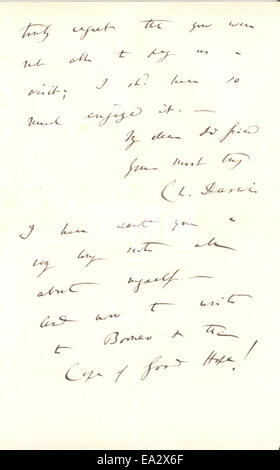 truly regret that you were
not able to pay us a
visit; I shd. have so
much enjoyed it.—
My dear old friend
Yours most truly
Ch. Darwin
I have sent you a
very long note all
about myself.—
And now to write
to Borneo & the
Cape of Good Hope!
alamy
EA2X6F